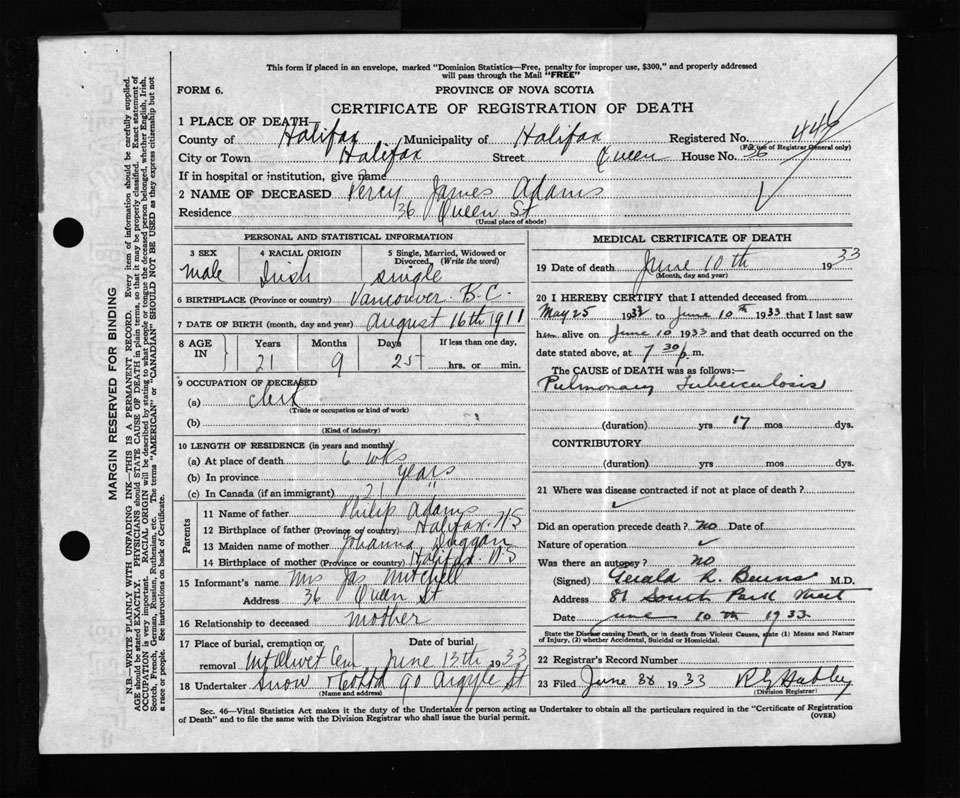 This form if placed in an envelope, marked "Dominion Statistics—Free, penalty for improper use, $300," and properly addressed
will pass through the Mail "FREE"
FORM 6. PROVINCE OF NOVA SCOTIA
CERTIFICATE OF REGISTRATION OF DEATH
1 PLACE OF DEATH
County of Halifax Municipality of Halifax Registered No. 446
(For use of Registrar General only)
City or Town Halifax Street Queen House No. 36
If in hospital or institution, give name
2 NAME OF DECEASED Percy James Adams
Residence 36 Queen St
(Usual place of abode)
PERSONAL AND STATISTICAL INFORMATION
3 SEX 4 RACIAL ORIGIN 5 Single, Married, Widowed or
Divorced, (Write the word)
Male Irish single
6 BIRTHPLACE (Province or country) Vancouver B.C.
7 DATE OF BIRTH (month, day and year) August 16th 1911
8 AGE IN Years Months Days If less than one day,
21 9 25 hrs. or min.
9 OCCUPATION OF DECEASED
(a) Clerk
(Trade or occupation or kind of work)
(b)
(Kind of industry)
10 LENGTH OF RESIDENCE (in years and months)
(a) At place of death 6 wks
(b) In province years
(c) In Canada (if an immigrant) 21 "
Parents
11 Name of father Philip Adams
12 Birthplace of father (Province or country) Halifax N.S
13 Maiden name of mother Johanna Duggan
14 Birthplace of mother (Province or country) Halifax N.S
15 Informant's name Mrs Jas Mitchell
Address 36 Queen St
16 Relationship to deceased mother
17 Place of burial, cremation or Date of burial
removal Mt Olivet Cem June 13th 1933
18 Undertaker Snow & Co Ltd 90 Argyle St
(Name and address)
MEDICAL CERTIFICATE OF DEATH
19 Date of death June 10th 1933
(Month, day and year)
20 I HEREBY CERTIFY that I attended deceased from
May 25 1933 to June 10th 1933 that I last saw
him alive on June 10 1933 and that death occurred on the
date stated above, at 7 30 p.m.
The CAUSE of DEATH was as follows:—
Pulmonary Tuberculosis
(duration) yrs 17 mos dys.
CONTRIBUTORY
(duration) yrs mos dys.
21 Where was disease contracted if not at place of death?
Did an operation precede death? no Date of
Nature of operation
Was there an autopsy? no
(Signed) Gerald R. Burns M.D.
Address 81 South Park Street
Date June 10th 1933
State the Disease causing Death, or in death from Violent Causes, state (1) Means and Nature
of Injury, (2) whether Accidental, Suicidal or Homicidal.
22 Registrar's Record Number
23 Filed June 1933
(Division Registrar)
Sec. 46—Vital Statistics Act makes it the duty of the Undertaker or person acting as Undertaker to obtain all the particulars required in the "Certificate of Registration
of Death" and to file the same with the Division Registrar who shall issue the burial permit. (OVER)
MARGIN RESERVED FOR BINDING
N.B.—WRITE PLAINLY WITH UNFADING INK—THIS IS A PERMANENT RECORD. Every item of information should be carefully supplied.
AGE should be stated EXACTLY. PHYSICIANS should STATE CAUSE OF DEATH in plain terms, so that it may be properly classified. Exact statement of
OCCUPATION is very important. RACIAL ORIGIN will be described by stating to what people or tongue the deceased person belonged, whether English, Irish,
Scotch, French, German, Russian, Ruthenian, etc. The terms "AMERICAN" or "CANADIAN" SHOULD NOT BE USED as they express citizenship but not
a race or people. See instructions on back of Certificate.